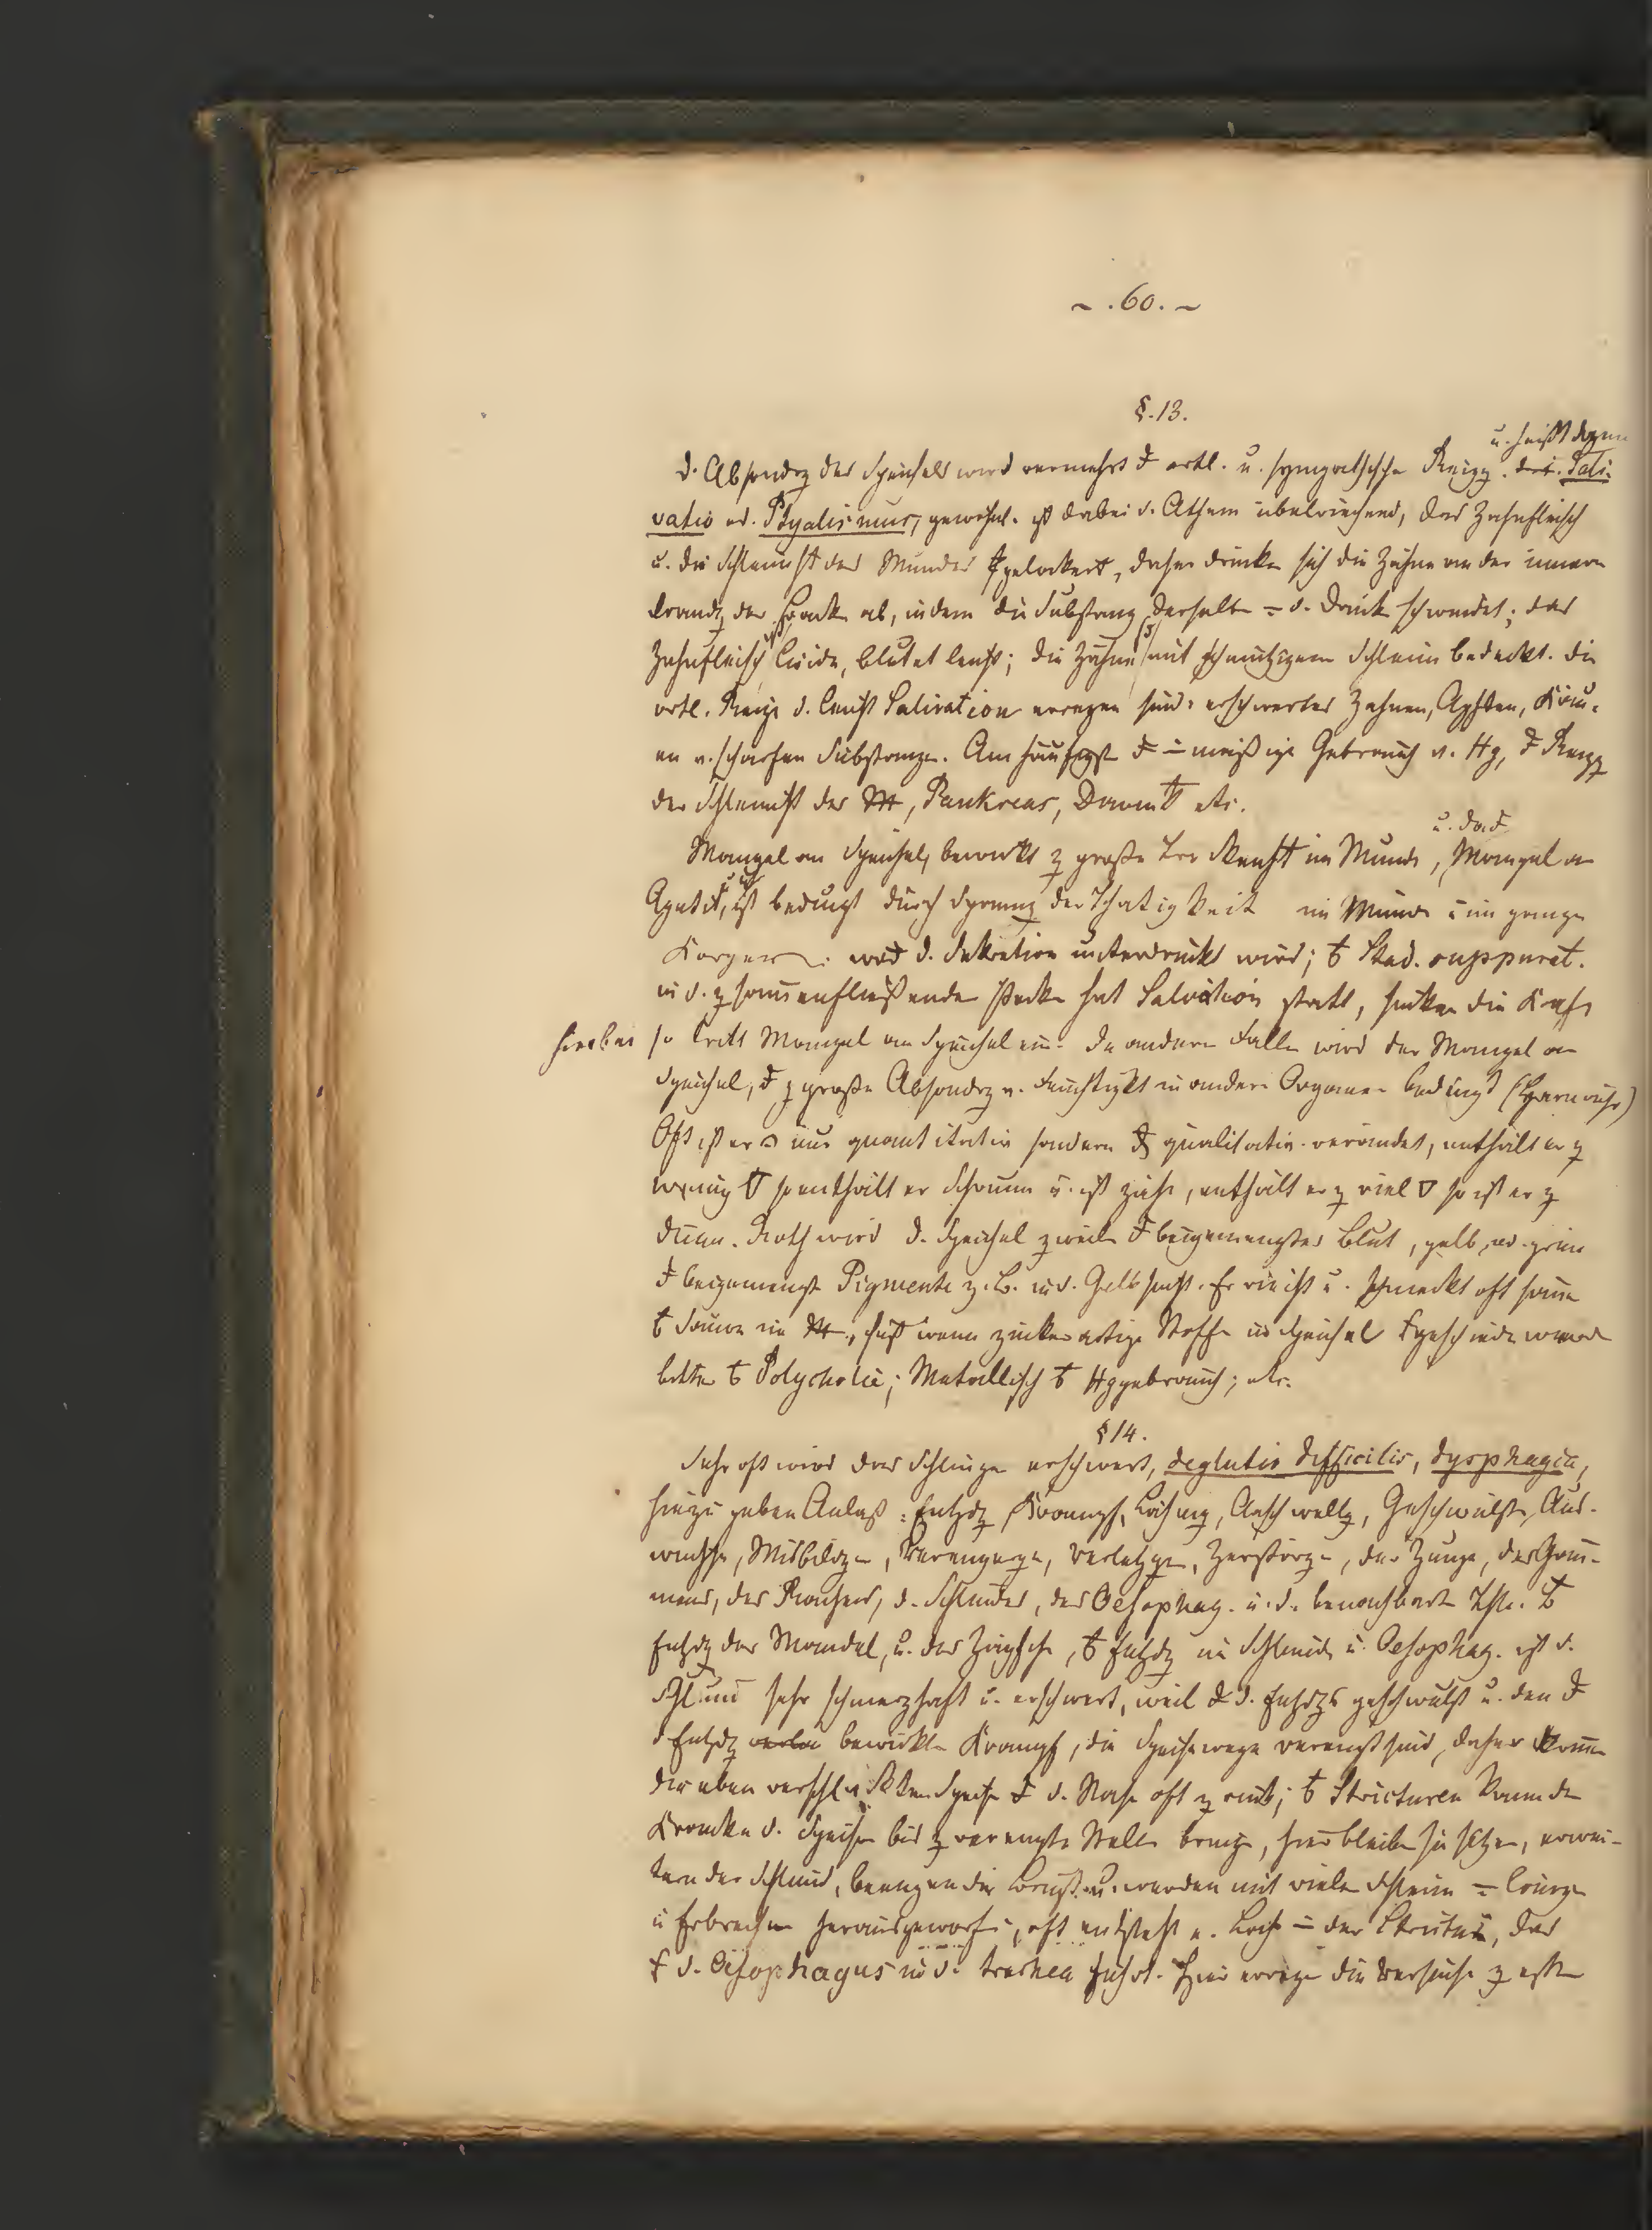 ~ . 60. ~
§. 13.
u. heißt dann
d. Absondrg des Speichels wird vermehrt d örtl. u. sympathische Reizg. Sali-
vatio od. Ptyalismus, gewöhnl. ist dabei d. Athem übelriechend, das Zahnfleisch
u. die Schleimht des Mundes gelockert, daher drücken sich die Zähne an der innern
der Backe ab, indem die Substanz derselben d. Druck schwindet; das
Zahnfleisch ist livide, blutet leicht; die Zähne mit schmutzigem Schleim bedeckt. die
örtl. Reize d. leicht Salivation erregen sind: erschwertes Zahnen, Aphten, Kau-
en v. scharfen Substanzen. Am häufigst mäßige Gebrauch v. Hg, Reizg
der Schleimht des, Pankreas, Darms etc.
u. dad
Mangel an Speichel, bewirkt z große Trockenht im Munde, Mangel an
Apetit, u ist bedingt durch der Thätigkeit im Munde im ganzen
Körper d. Sekretion unterdrückt wird; Stad. suppurat.
in d. zusammenfließenden Pocken hat Salivation statt, sinken die Kräfte
hierbei so tritt Mangel an Speichel ein. In andern Fällen wird der Mangel an
Speichel, z große Absondrg v. Feuchtigkt in andern Organen bedingt (Harnruhr)
Oft ist er nur quantitativ sondern qualitativ verändet, enthält er z
wenig so enthält er Schaum u. ist zähe, enthält er z viel so ist er z
dünn. Roth wird d. Speichel zweilen beigemengtes Blut, gelb, od. grün
beigemengte Pigmente z. B. in d. Gelbsucht. Er riecht u. schmeckt oft sauer
Säure im, süß wenn zuckerartige Stoffe im Speichel geschieden werden
bitter Polycholie; Metallisch Hggebrauch; etc.
§ 14.
Sehr oft wird das Schlingen erschwert, deglutio difficilis, dysphagia,
hiezu geben Anlaß: Entzdg, Krampf, Lähmg, Anschwellg, Geschwülste, Aus-
wüchse, Misbildgen, Verengergn, Verletzgen, Zerstörgen, der Zunge, des Gau-
mens, des Rachens, d. Schlundes, des Oesophag. u. d. benachbarten Thle.
Entzdg der Mandel, u. des Zäpfchen, Entzdg im Schlunde u. Oesophag. ist d.
Schlund sehr schmerzhaft u. erschwert, weil d. Entzdgs geschwulst u. den
d Entzdg bewirkten Krampf, die Speisewege verengt sind, daher kommen
die eben verschluckten Speisen d. Nase oft zurück; Stricturen kann der
Kranke d. Speisen bis z verengten Stelle bringen, hier bleiben sie sitzen, erwei-
tern den Schlund, beengen die Brust u. werden mit vielem Schleim
u Erbrechen herausgeworfen, oft entsteht e. Loch in der Strictur, das
d. Oesophagus in d. trachea führt. Hier erregen die Versuche z essen